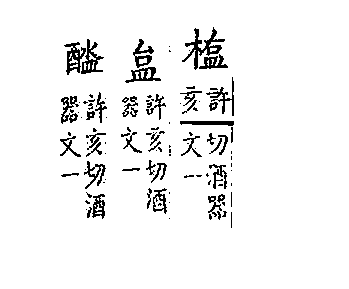 許
亥
切酒器
文一
許亥切酒
器文一
許亥切酒
器文一